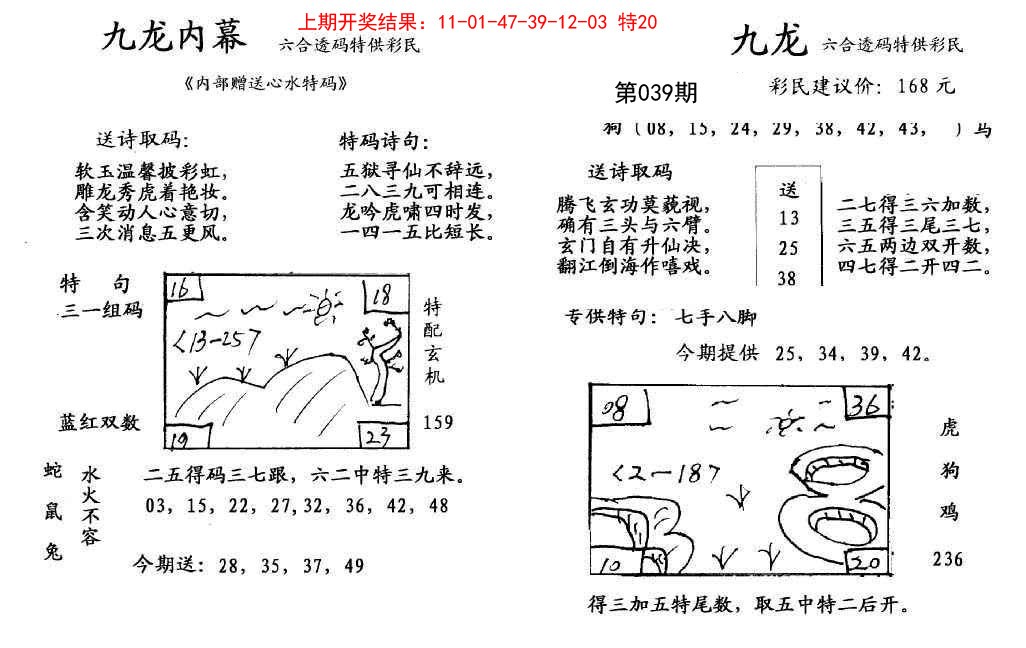 上期开奖结果：11-01-47-39-12-03 特20
九龙内幕 六合透码特供彩民
《内部赠送心水特码》
送诗取码：
软玉温馨披彩虹，
雕龙秀虎着艳妆。
含笑动人心意切，
三次消息五更风。
特码诗句：
五狱寻仙不辞远，
二八三九可相连。
龙吟虎啸四时发，
一四一五比短长。
特 句
三一组码
蓝红双数
16
18
<13-25>
19
23
特配玄机
159
蛇
鼠
兔
水火不容
二五得码三七跟，六二中特三九来。
03，15，22，27，32，36，42，48
今期送：28，35，37，49
九龙 六合透码特供彩民
第039期
彩民建议价：168 元
狗（08，15，24，29，38，42，43， ）马
送诗取码
腾飞玄功莫藐视，
确有三头与六臂。
玄门自有升仙决，
翻江倒海作嘻戏。
送
13
25
38
二七得三六加数，
三五得三尾三七，
六五两边双开数，
四七得二开四二。
专供特句：七手八脚
今期提供 25，34，39，42。
08
36
<2-18>
10
20
虎
狗
鸡
236
得三加五特尾数，取五中特二后开。